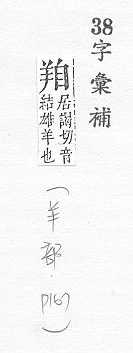 38字彙補
居謁切音
結雄羊也
(羊部.p167)